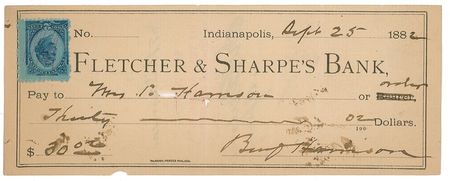 No. Indianapolis, Sept 25 1882
FLETCHER & SHARPE'S BANK,
order
Pay to Mrs B. Harrison or Bearer
Thirty 00/100 Dollars.
$30 00 Benj Harrison